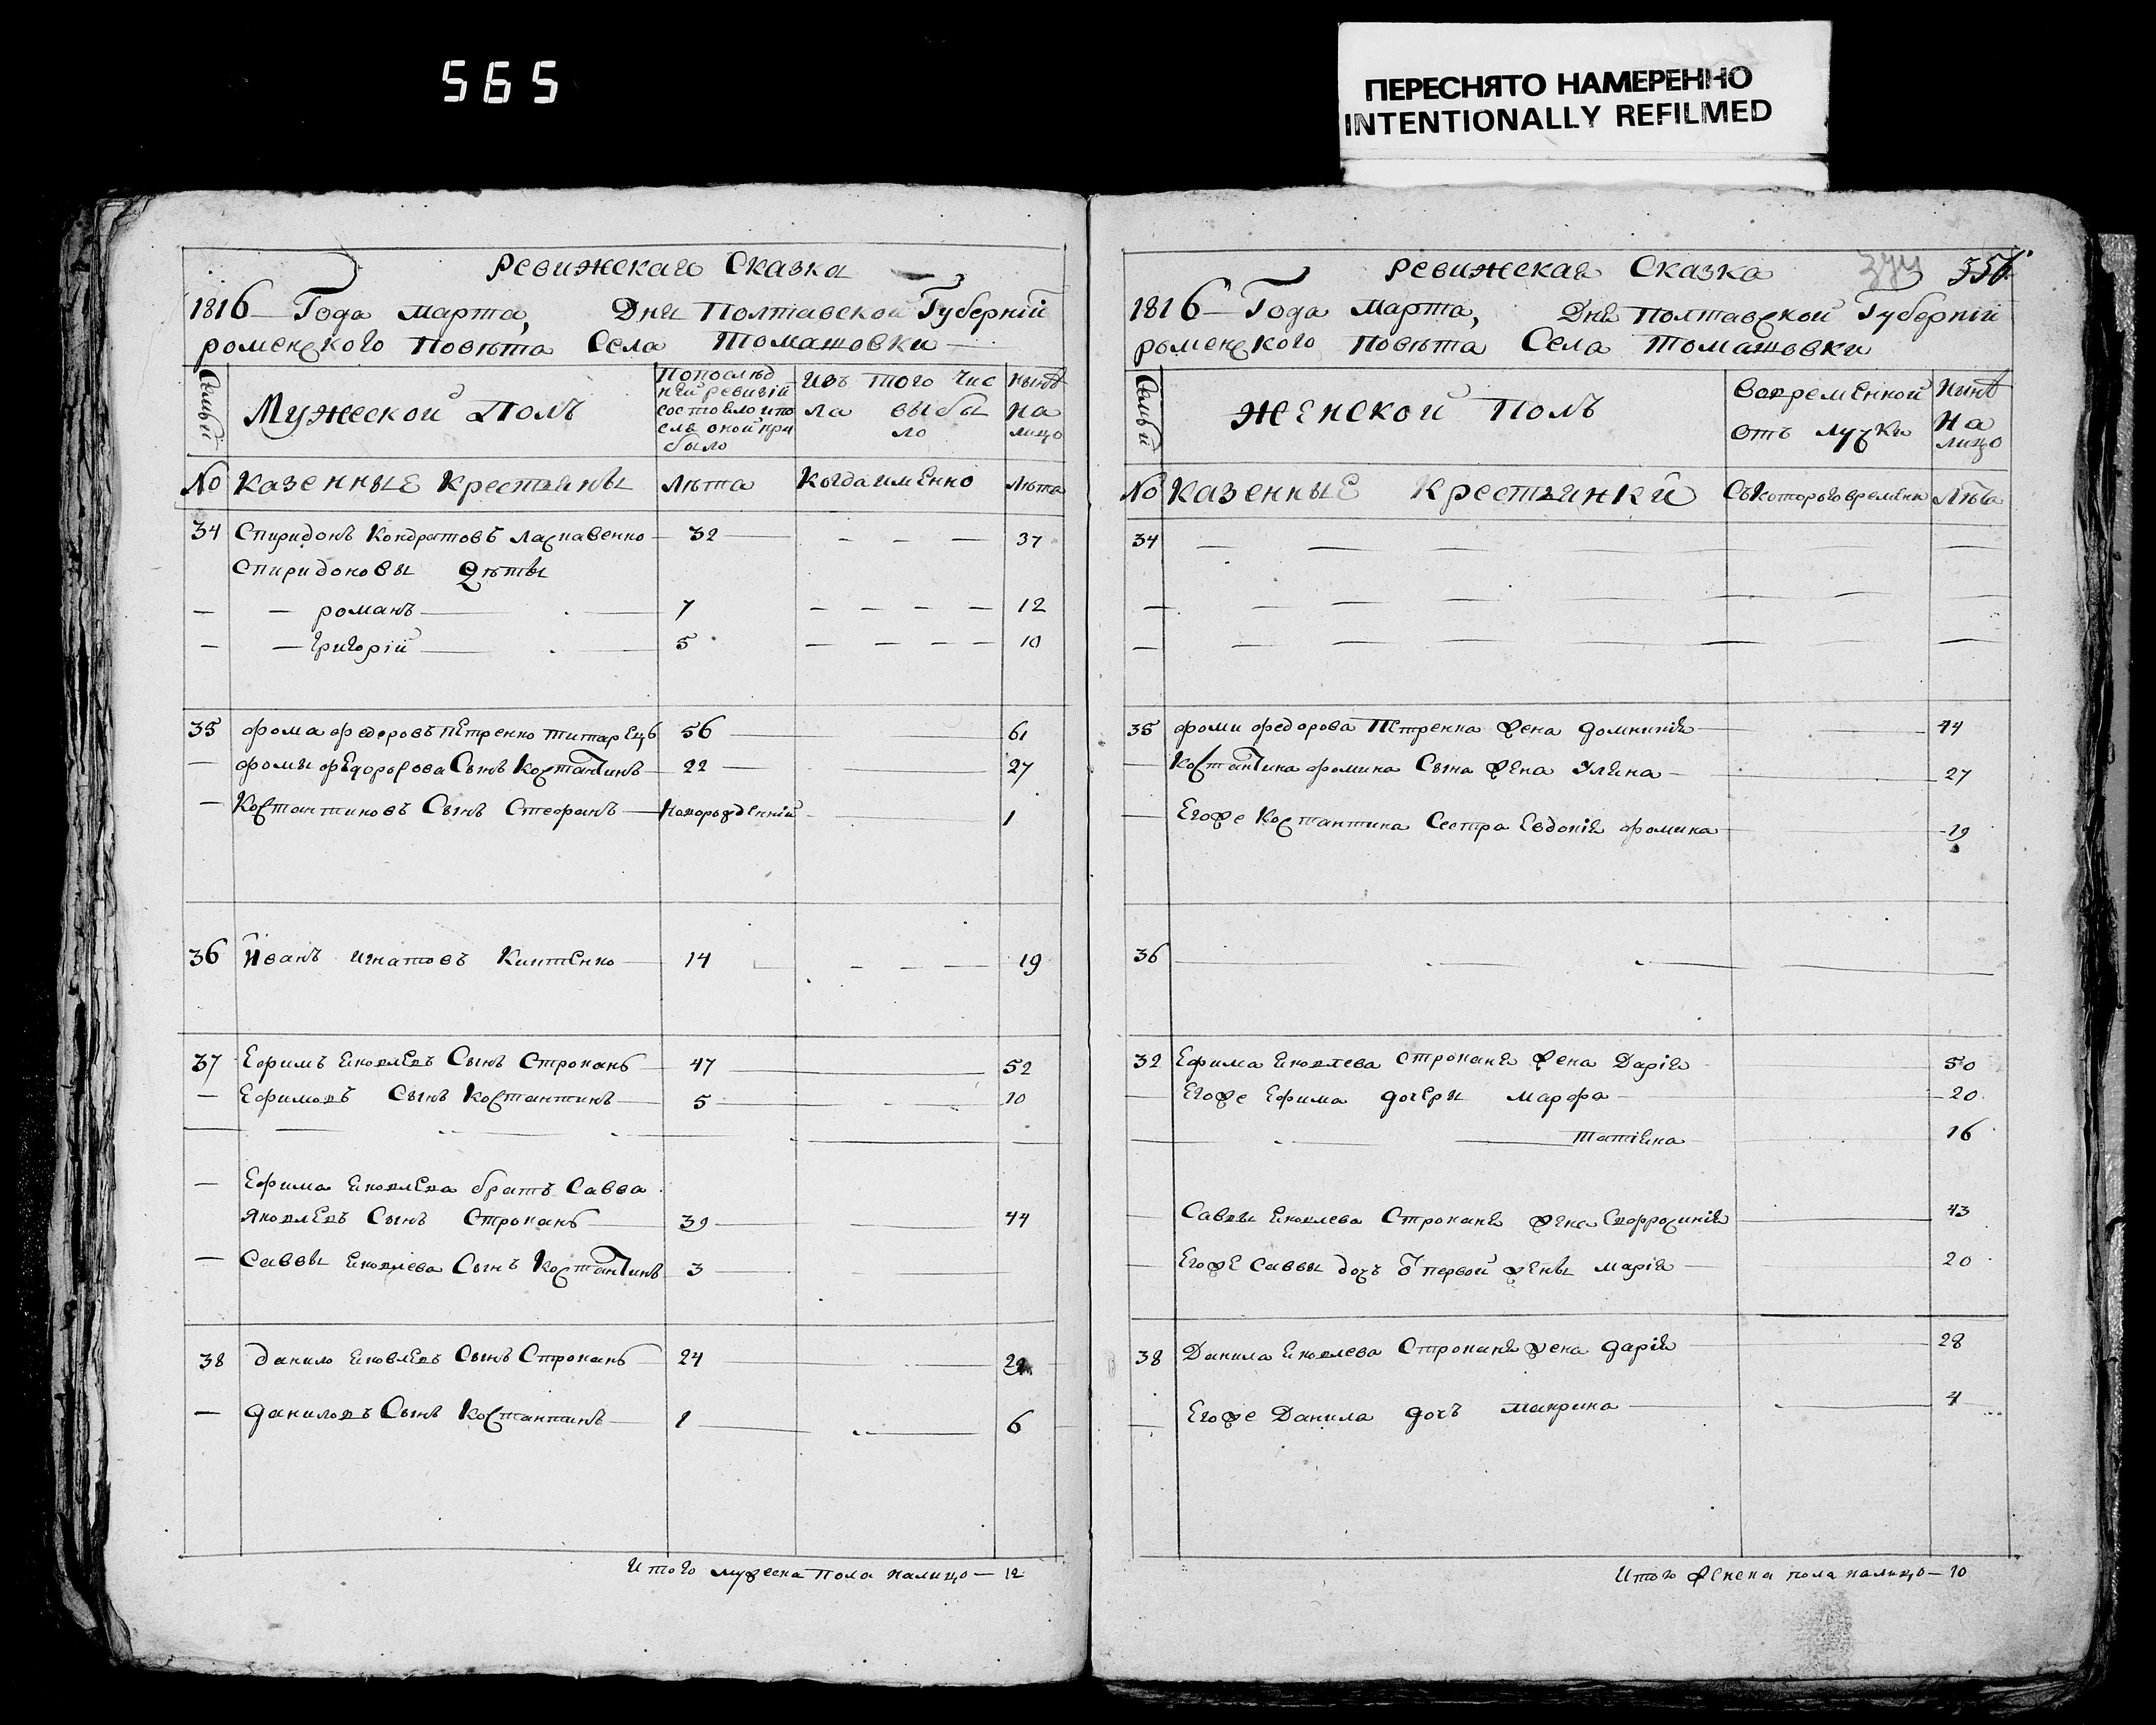 565
ПЕРЕСНЯТО НАМЕРЕННО
INTENTIONALLY REFILMED
Ревижская Сказка
1816 Года марта, Дня Полтавской Губерній
роменского Повѣта Села Томашовки
Семьй
Мужеской Полъ
Попослѣд
ней ревизій
состояло ипо
слѣ оной при
было
Изъ того чис
ла выбы
ло
Нынѣ
на
лицо
No Казенные Крестьяны Лѣта Когда имЕнно Лѣта
34 Спиридонъ Кондратовъ 32 — — — 37
Спиридоновы Дѣты
— — романъ 7 — — — — 12
— — Григорій 5 — — — — 10
35 Фома Федоровъ ПЕтренко ТитарЕцъ 56 61
— Фомы Сынъ Костантинъ 22 27
— Костантиновъ Сынъ Стефанъ Новорожденній 1
36 Иванъ Игнатовъ 14 — — — 19
37 Ефимъ Яковлевъ Сынъ Строкань 47 52
— Ефимовъ Сынъ Костантинъ 5 10
— Ефима Яковлева братъ Савва
Яковлевъ Сынъ Строкань 39 44
— Саввы Яковлева Сынъ Костантинъ 3
38 Данило Яковлевъ Сынъ Строкань 24 29
— Даниловъ Сынъ Костантинъ 1 6
Итого мужеска пола налицо — 12
Ревижская Сказка
1816 Года Марта, Дня Полтавской Губерній
роменского Повѣта Села Томашовки
Семьй
ЖЕнской Полъ
Вовременной
отъ лучки
Нынѣ
на
лицо
No Казенные Крестьянки Съкоторого времени Лѣта
34
35 Фоми Федорова Петренка жена Домникія 44
— Костантина Фомина Сына жена Уляна 27
— Егоже Костантина Сестра Евдокія Фомина 19
36
32 Ефима Яковлева Строканя жена Дарія 50
— Егоже Ефима дочЕры Марфа 20
— Татіяна 16
— Саввы Яковлева Строканя жена 43
— Егоже Саввы дочъ первой жены Марія 20
38 Данила Яковлева Строканя жена Дарія 28
— Егоже Данила дочъ Макрина 4
Итого женска пола налицо — 10